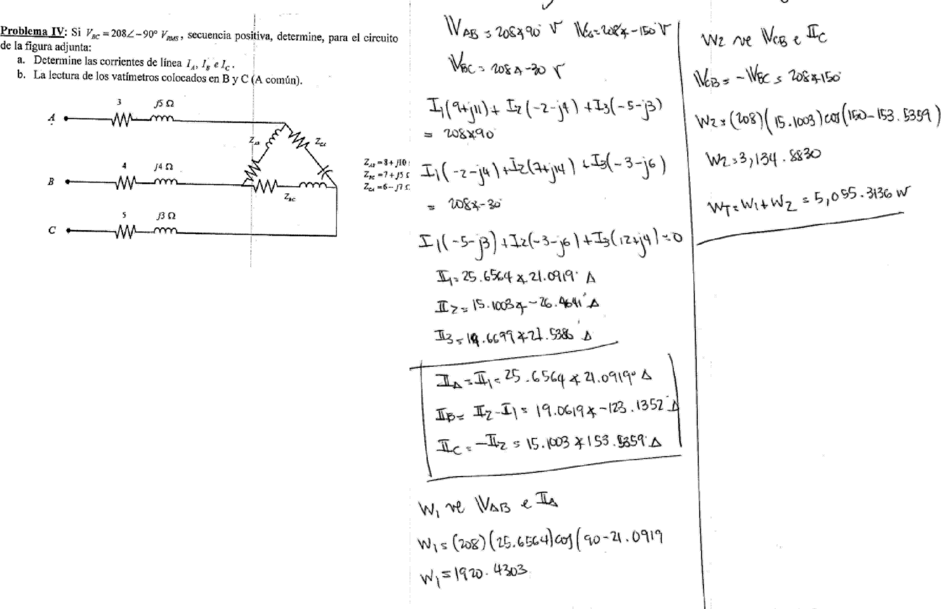 Problema IV: Si V_BC = 208∠-90° V_RMS, secuencia positiva, determine, para el circuito
de la figura adjunta:
a. Determine las corrientes de línea I_A, I_B e I_C.
b. La lectura de los vatímetros colocados en B y C (A común).
3 j5 Ω
A
Z_AB Z_CA
4 j4 Ω
B
Z_BC
5 j3 Ω
C
Z_AB =8+j10
Z_BC =7+j5 Ω
Z_CA =6-j7 Ω
V_AB = 208∠90° V
V_BC = 208∠-30 V
I1(9+j11) + I2(-2-j4) + I3(-5-j3)
= 208∠90°
I1(-2-j4)+I2(7+j14)+I3(-3-j6)
= 208∠-30
I1(-5-j3)+I2(-3-j6)+I3(12+j4)=0
I1=25.6564∠21.0919° A
I2=15.1003∠-26.4641° A
I_A=I1=25.6564∠21.0919° A
I_B= I2-I1= 19.0619∠-123.1352° A
I_C=-I2=15.1003∠153.5359° A
W1 ve V_AB e I_A
W1=(208)(25.6564)cos(90-21.0919
W1=1920.4303
W2 ve V_CB e I_C
V_CB=-V_BC=208∠150°
W2=(208)(15.1003)cos(150-153.5359)
W2=3,134.8830
W_T=W1+W2=5,055.3136 W